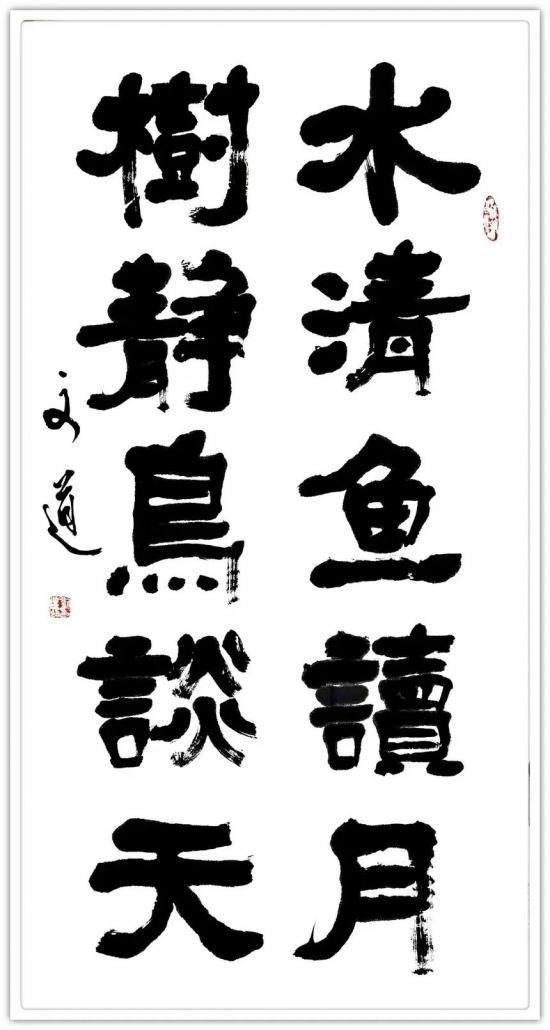 水清鱼讀月
樹靜鳥談天
文道